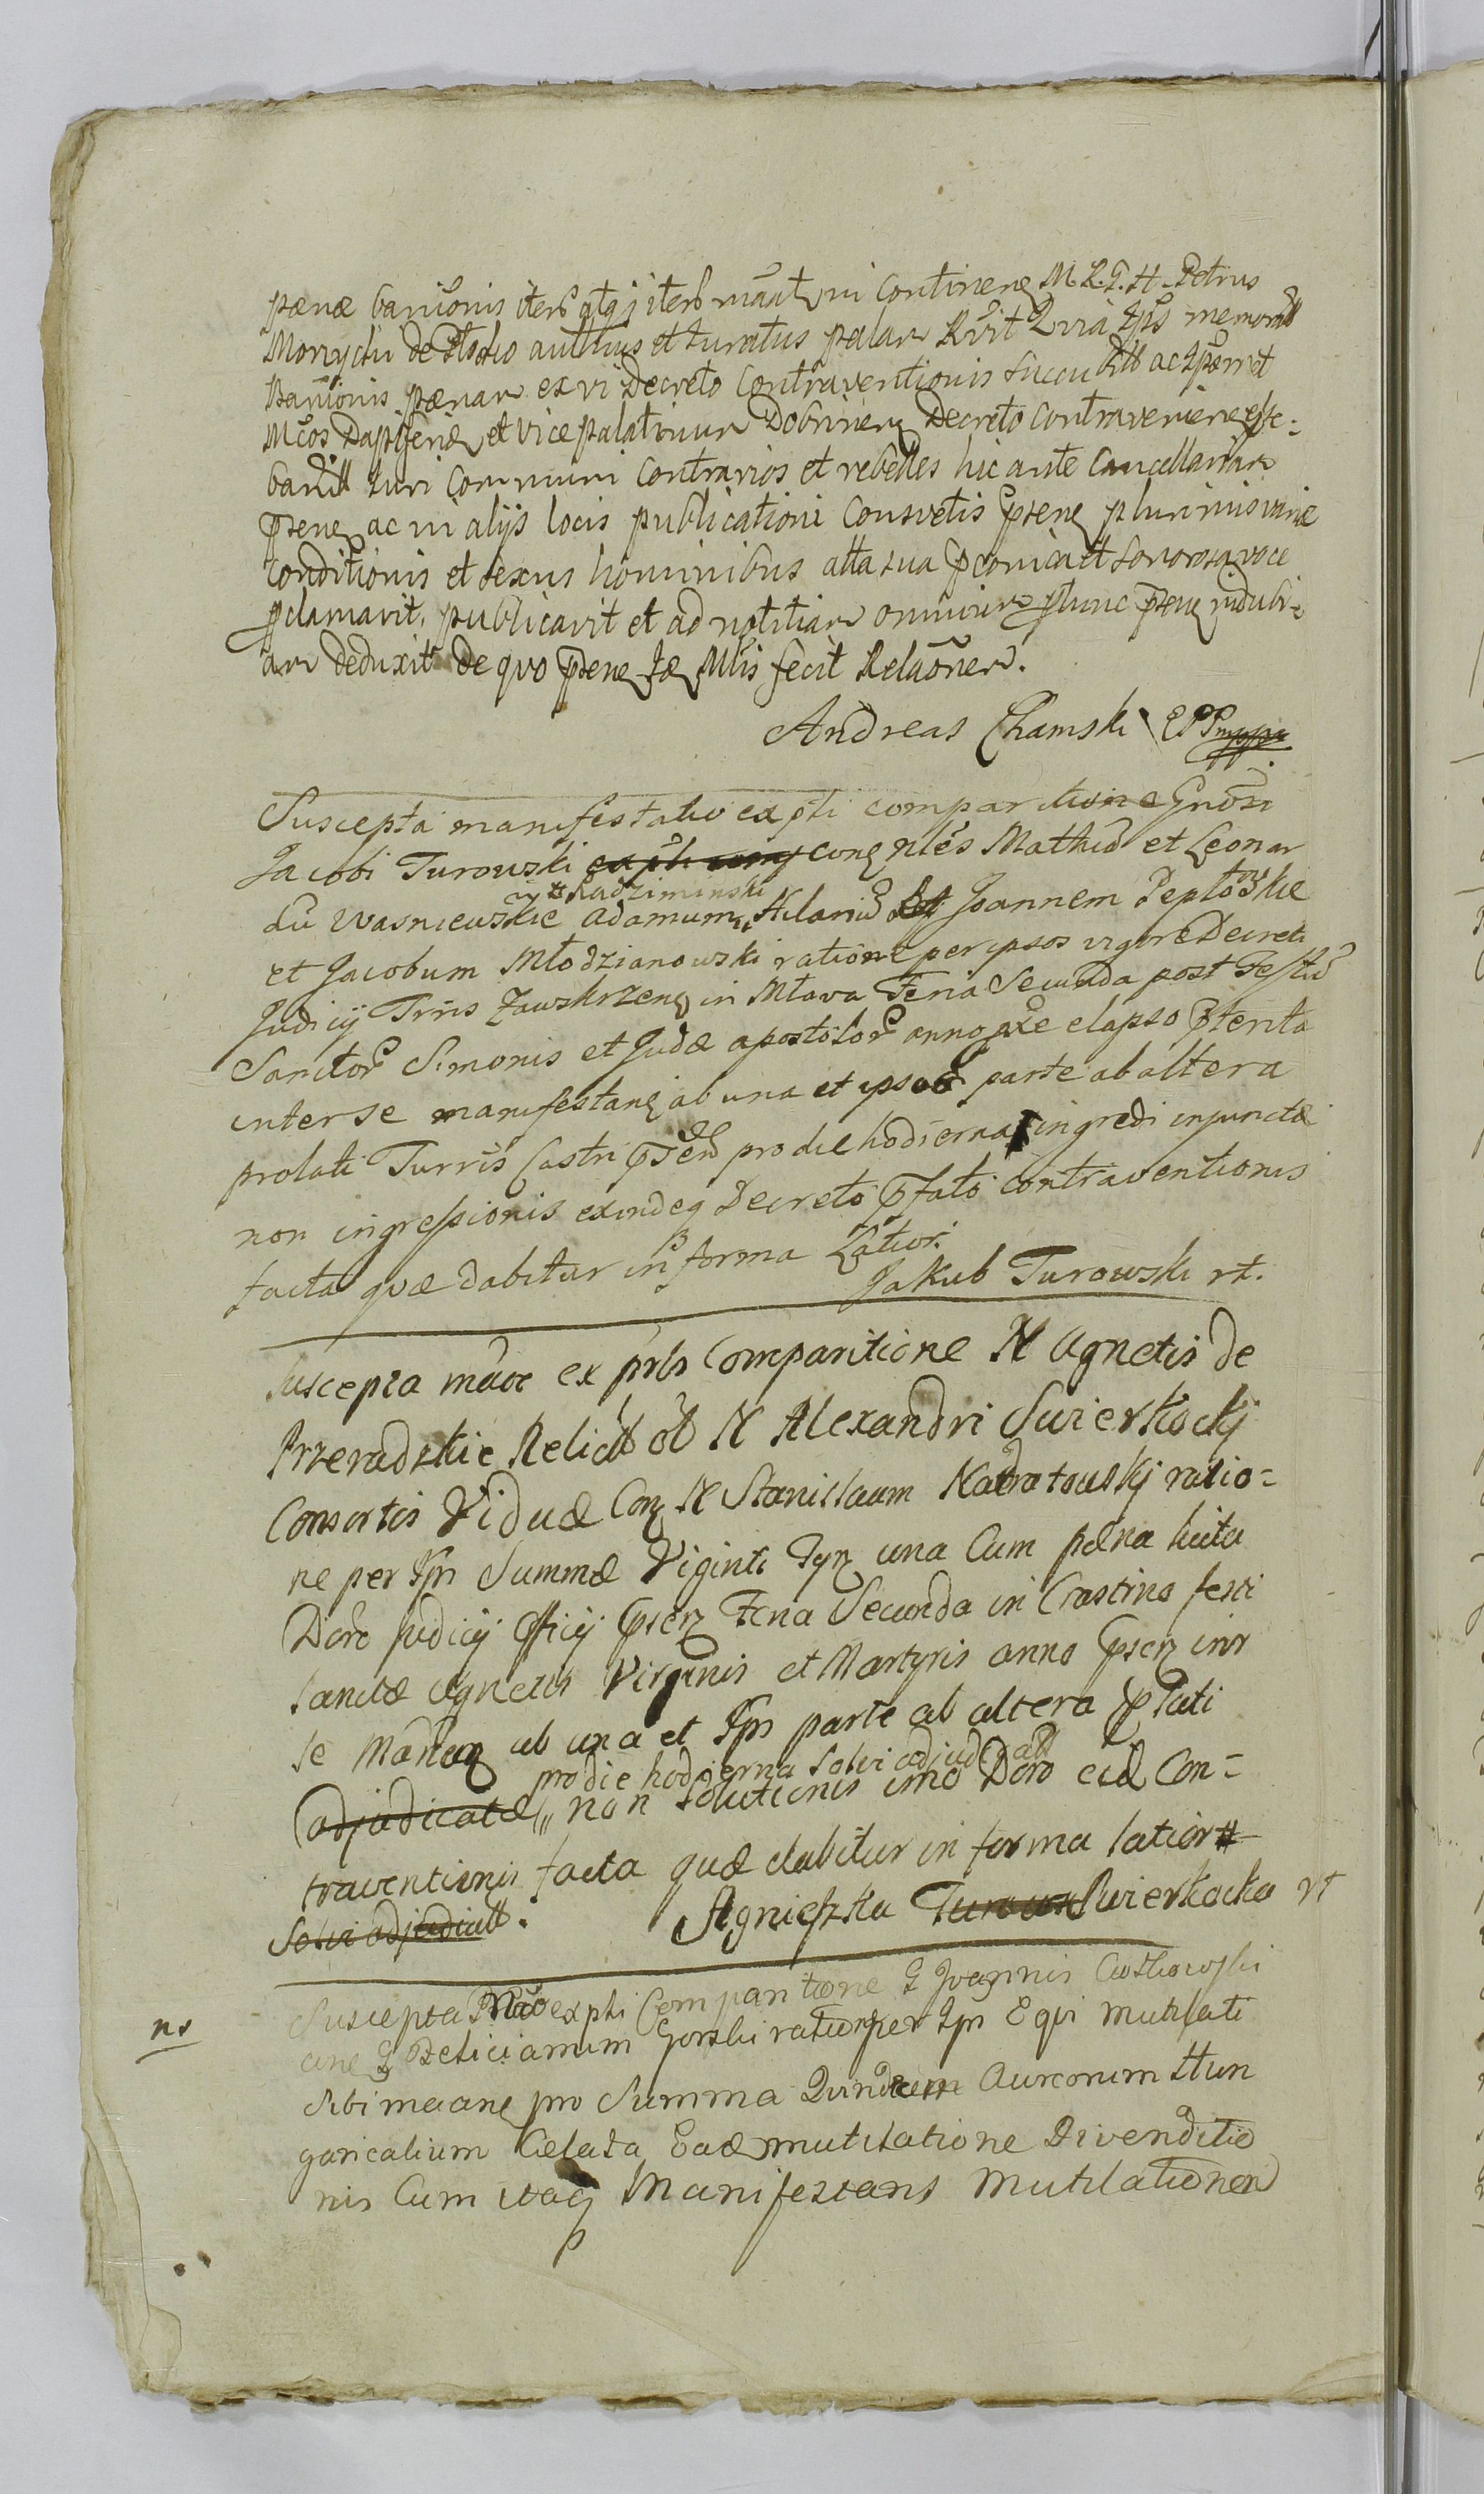 pænæ banionis iterũ atqꝫ iterũ mãnt in Continenꝫ M.R.G.H. Petrus
de Plocko authûs et Juratus palam Rvit Qvia Ips memoratt
Banionis pænam ex vi Decreto Contraventionis succu ac Ipm et
Mcos Dapiferũ et vice palatinum Dobrinenꝫ Decreto Contravenienꝫ esse
banitt Juri Communi Contrarios et rebelles hic ante Cancellariam
p̃senꝫ ac in alijs locis publicationi Consvetis p̃senꝫ plurimis variæ
Conditionis et sexus hominibus alta sua p̃conica et sonorosa voce
p̃clamavit, publicavit et ad notitiam omnium p̃tunc p̃senꝫ indubi-
am deduxit de quo p̃senꝫ Iꝫ Mlis fecit Relaõnem.
Andreas Chamski
Suscepta manifestatio ex p̃ti comparitione Gnosi
Jacobi Turowski ex p̃ti comp conꝫ Nlês Mathiũ et Leonar
dũ Wasniewskie Adamum Hilariũ et Joannem Peplowskie
ij # Radziminski
et Jacobum Młodzianowski ratione per ipsos vigore Decreti
Judicij Trris Zawskrzenꝫ in Mława Feria Secunda post Festũ
Sanctor̃ Simonis et Judæ apostolor̃ anno pxe elapso p̃terito
inter se manifestanꝫ ab una et ipsos parte ab altera
prolati Turris Castri p̃sen pro die hodierna ingredi injunctæ
non ingressionis exindeqꝫ Decreto p̃fato contraventionis
facta quæ dabitur in forma Latiori
Jakub Turowski rt.
Suscepta mãoe ex pñti Comparitione N Agnetis de
Przeradzkie Relictt ol N Alexandri Swierkocki
Consortis Viduæ Conꝫ N Stanislaum Nadratowskij ratio=
ne per Ipm Summæ Viginti Tynꝫ una Cum pæna luita
Dcro Judicij Officij p̃senꝫ Feria Secunda in Crastino festi
Sanctæ Agnetis Virginis et Martyris anno p̃senꝫ intr
se Manfanꝫ ab una et Ipm parte ab altera p̃lati
pro die hodierna solvi adjudicatt
adjudicatæ,, non Solutionis imo Dcro eid Con=
traventionis facta quæ dabitur in forma latiori #
Solvi adjudicatt. Agnieszka Turows Swierkocka rt
ns
Suscepta Mãõ ex p̃hti Comparitione G Joannis
cne G Feliciamum Gorski ratione per Ipm Eqvi mutilati
Sibi meanꝫ pro Summa Qvindecem Aureorum Hun
garicalium Celata Ead mutilatione Divenditio
nis Cum itaqꝫ Manifestans Mutilationem